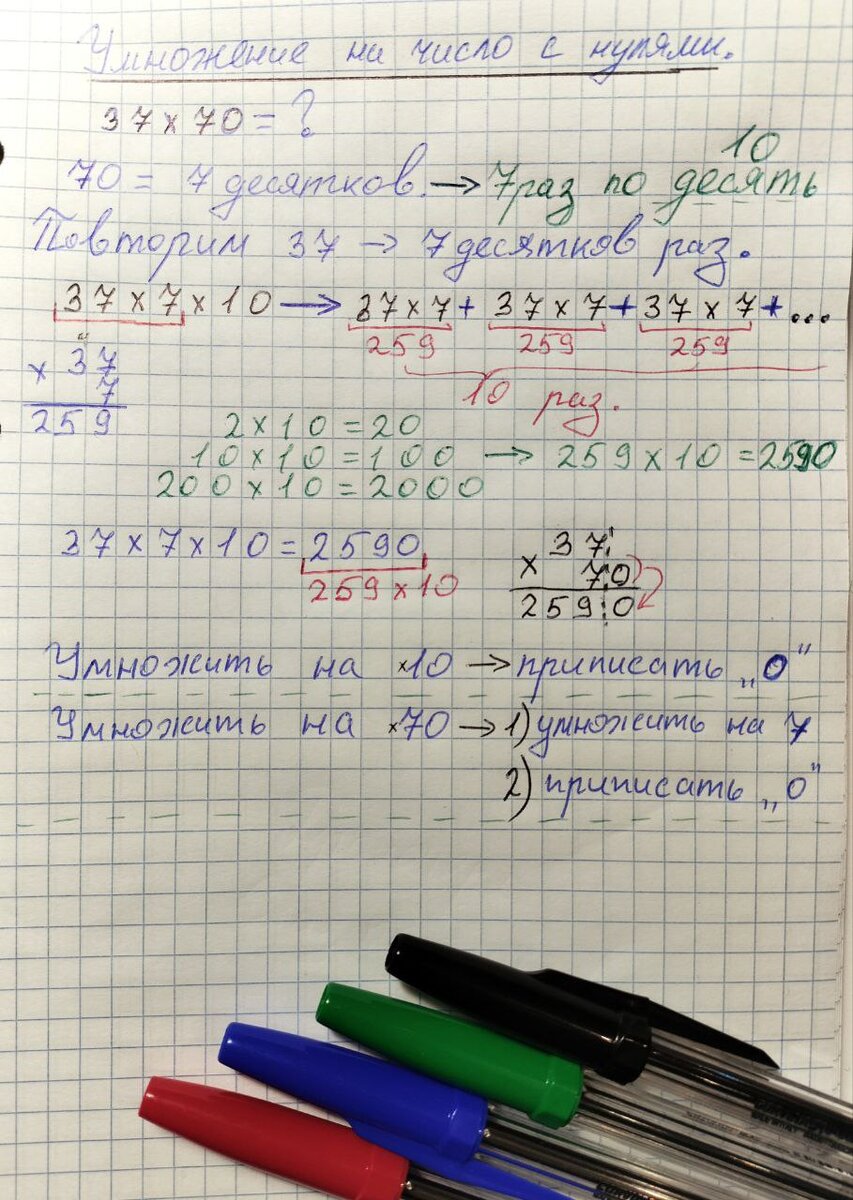 Умножение на число с нулями.
37 x 70 = ?
10
70 = 7 десятков. → 7 раз по десять
Повторим 37 → 7 десятков раз.
37 x 7 x 10 → 37 x 7 + 37 x 7 + 37 x 7 + ...
259 259 259
10 раз.
4
x 37
7
259
2 x 10 = 20
10 x 10 = 100 → 259 x 10 = 2590
200 x 10 = 2000
37 x 7 x 10 = 2590
259 x 10
37
x 70
2590
Умножить на x10 → приписать „0“
Умножить на x70 → 1) умножить на 7
2) приписать „0“